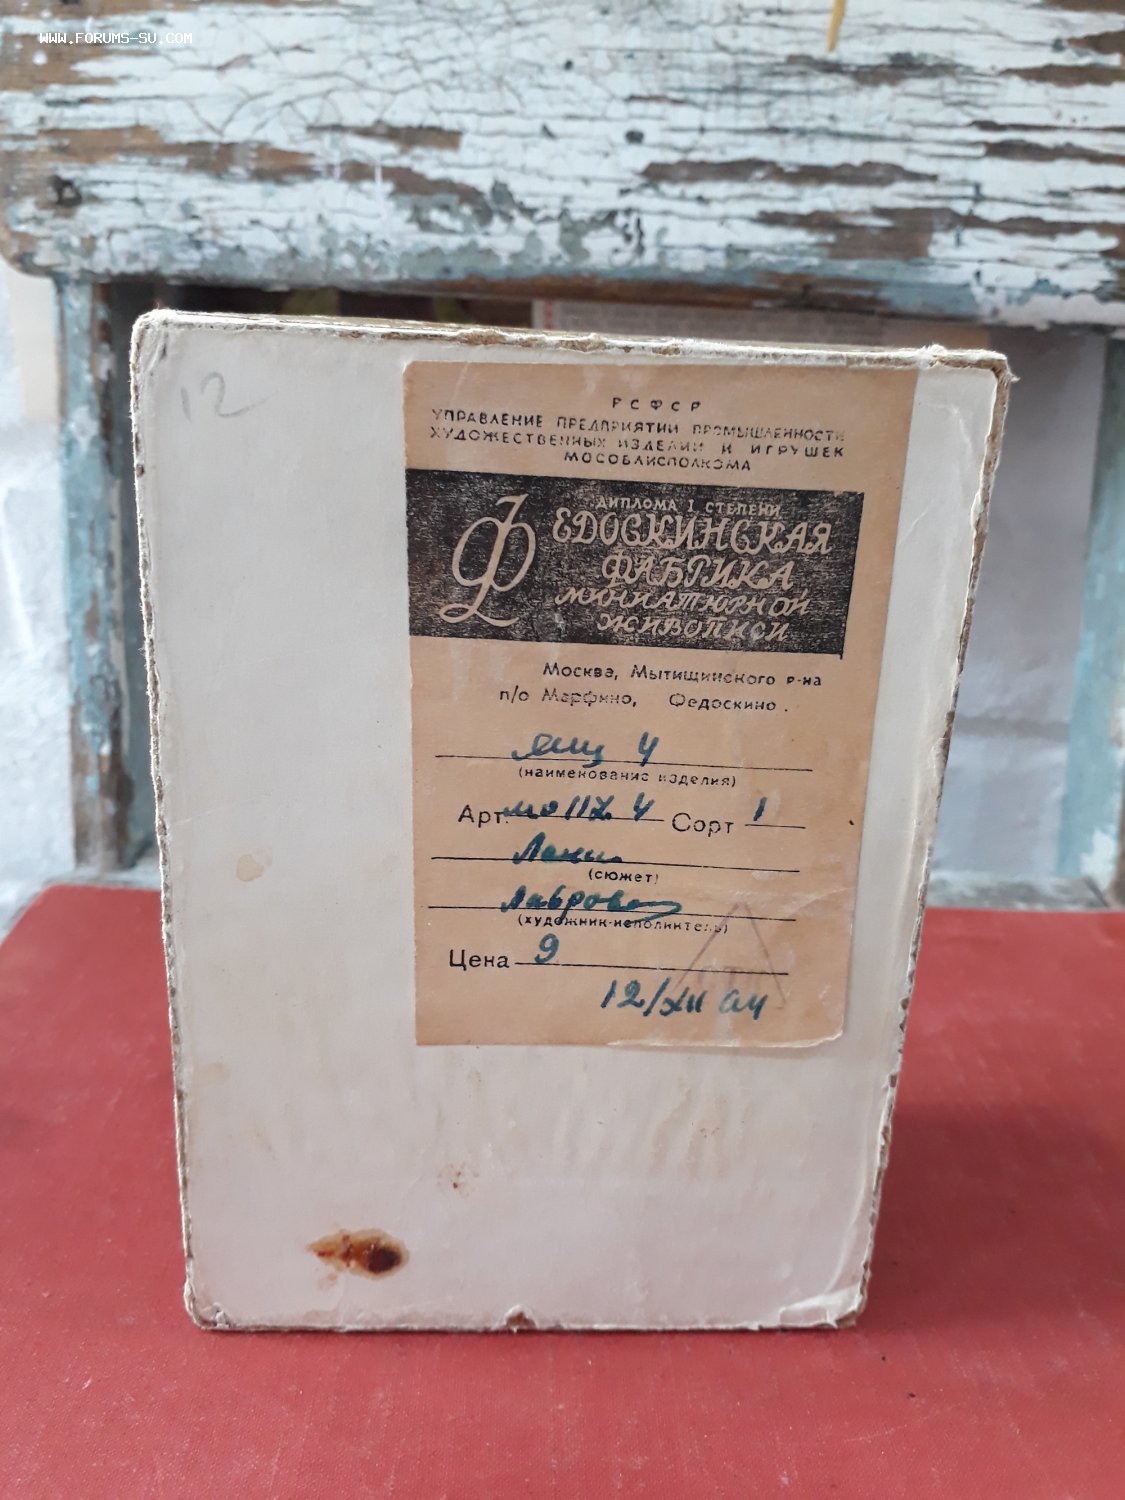 WWW.FORUMS-SU.COM
12
РСФСР
УПРАВЛЕНИЕ ПРЕДПРИЯТИЙ ПРОМЫШЛЕННОСТИ
ХУДОЖЕСТВЕННЫХ ИЗДЕЛИЙ И ИГРУШЕК
МОСОБЛИСПОЛКОМА
ДИПЛОМА I СТЕПЕНИ
ФЕДОСКИНСКАЯ
ФАБРИКА
МИНИАТЮРНОЙ
ЖИВОПИСИ
Москва, Мытищинского р-на
п/о Марфино, Федоскино.
(наименование изделия)
Арт. Сорт 1
(сюжет)
Лаврова
(художник-исполнитель)
Цена 9
12/XII